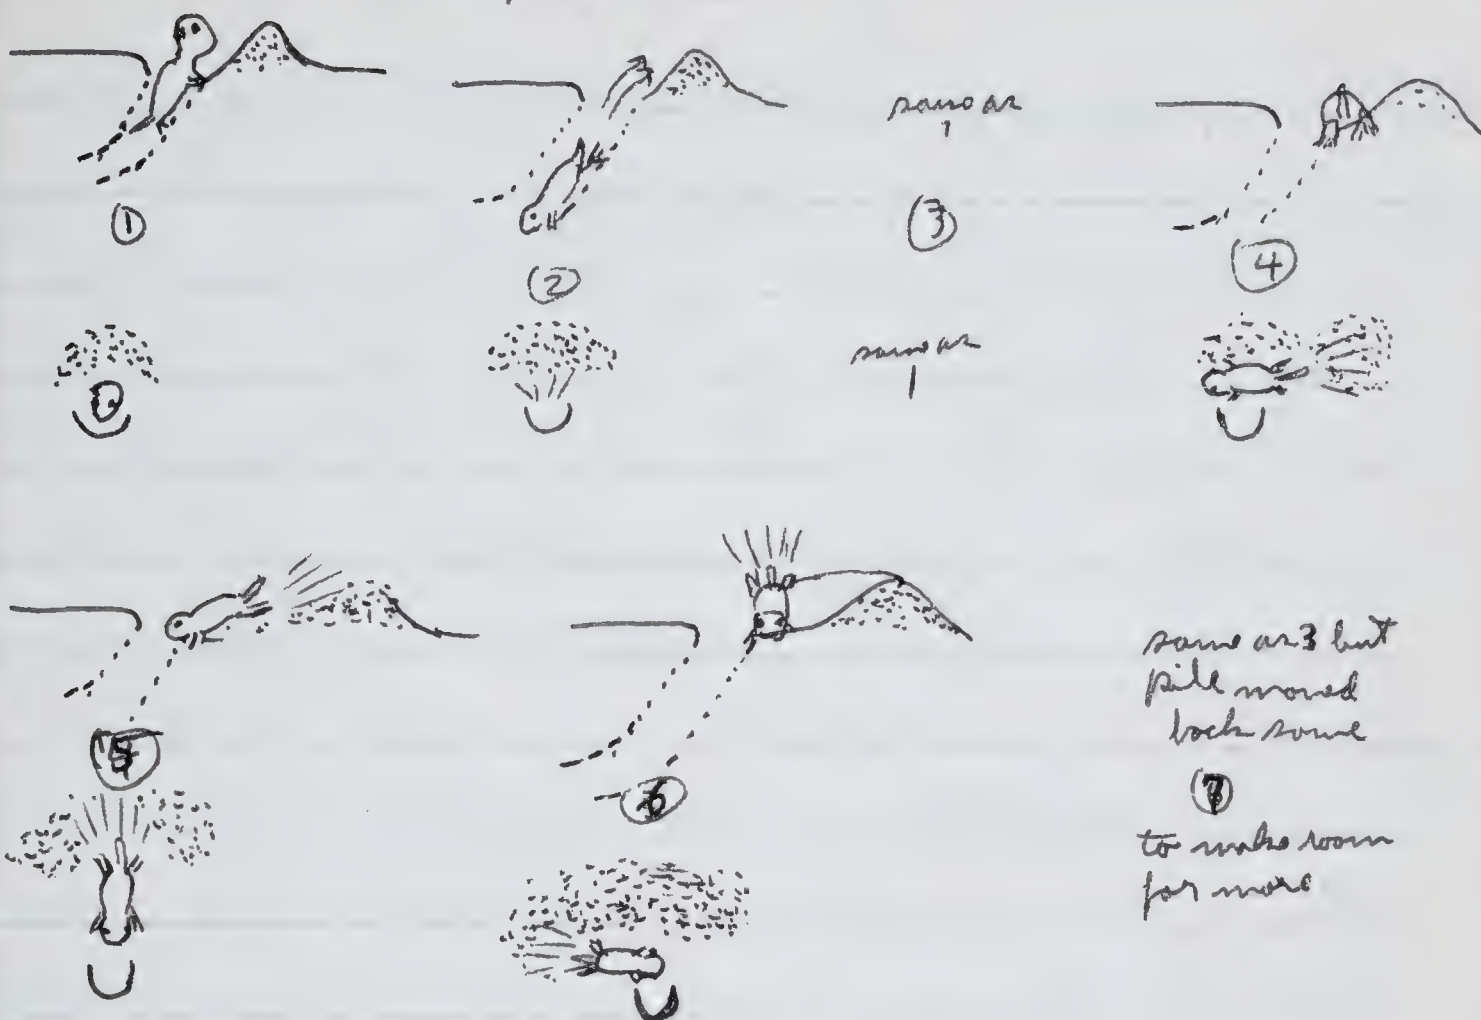 same as
1
1
2
3
4
same as
1
5
6
same as 3 but
pile moved
back some
7
to make room
for more